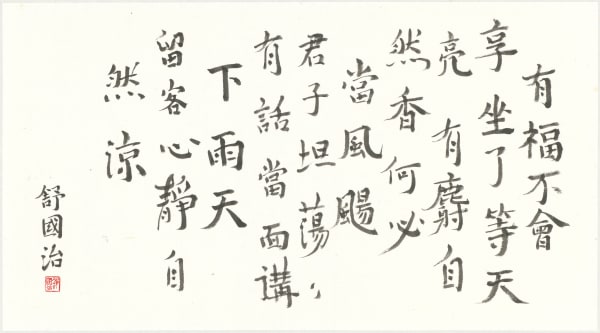 有福不會
享坐了等天
亮有麝自
然香何必
當風颺
君子坦蕩〻
有話當面講
下雨天
留客心靜自
然涼
舒國治